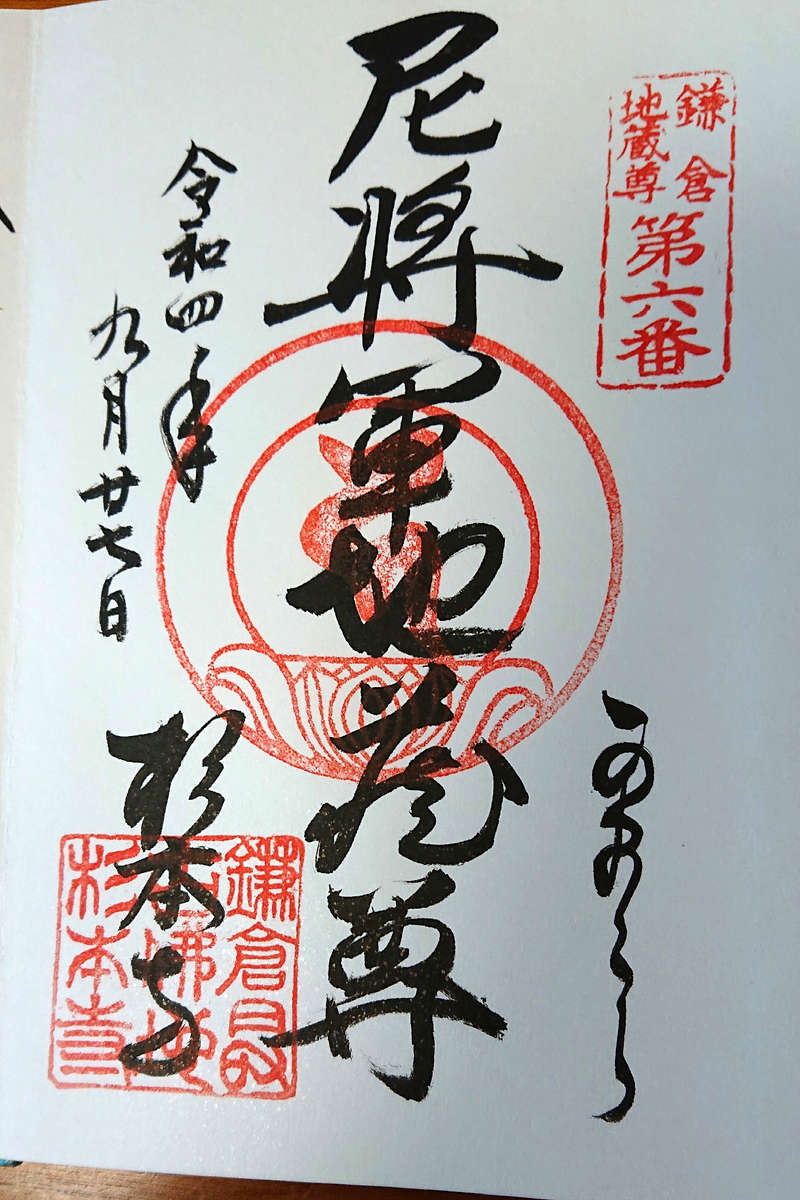 鎌倉
地蔵尊
第六番
尼将軍地蔵尊
令和四年
九月廿七日
杉本寺
鎌倉最
初佛地
杉本寺